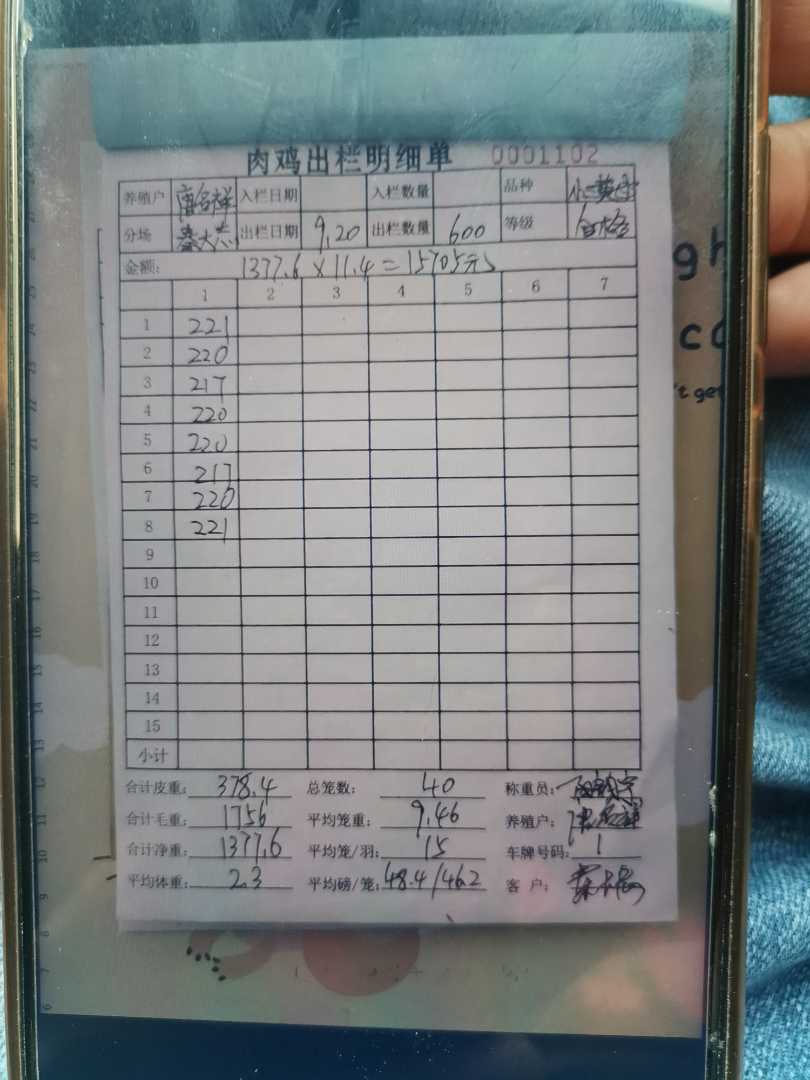 肉鸡出栏明细单 0001102
养殖户 唐名祥 入栏日期 入栏数量 品种
分场 秦大志 出栏日期 9.20 出栏数量 600 等级 合格
金额: 1377.6 × 11.4 = 15705元
1 2 3 4 5 6 7
1 221
2 220
3 217
4 220
5 220
6 217
7 220
8 221
9
10
11
12
13
14
15
小计
合计皮重: 378.4 总笼数: 40 称重员:
合计毛重: 1756 平均笼重: 9.46 养殖户:
合计净重: 1377.6 平均笼/羽: 15 车牌号码: 1
平均体重: 2.3 平均磅/笼: 48.4/46.2 客户:
gh
co
't get